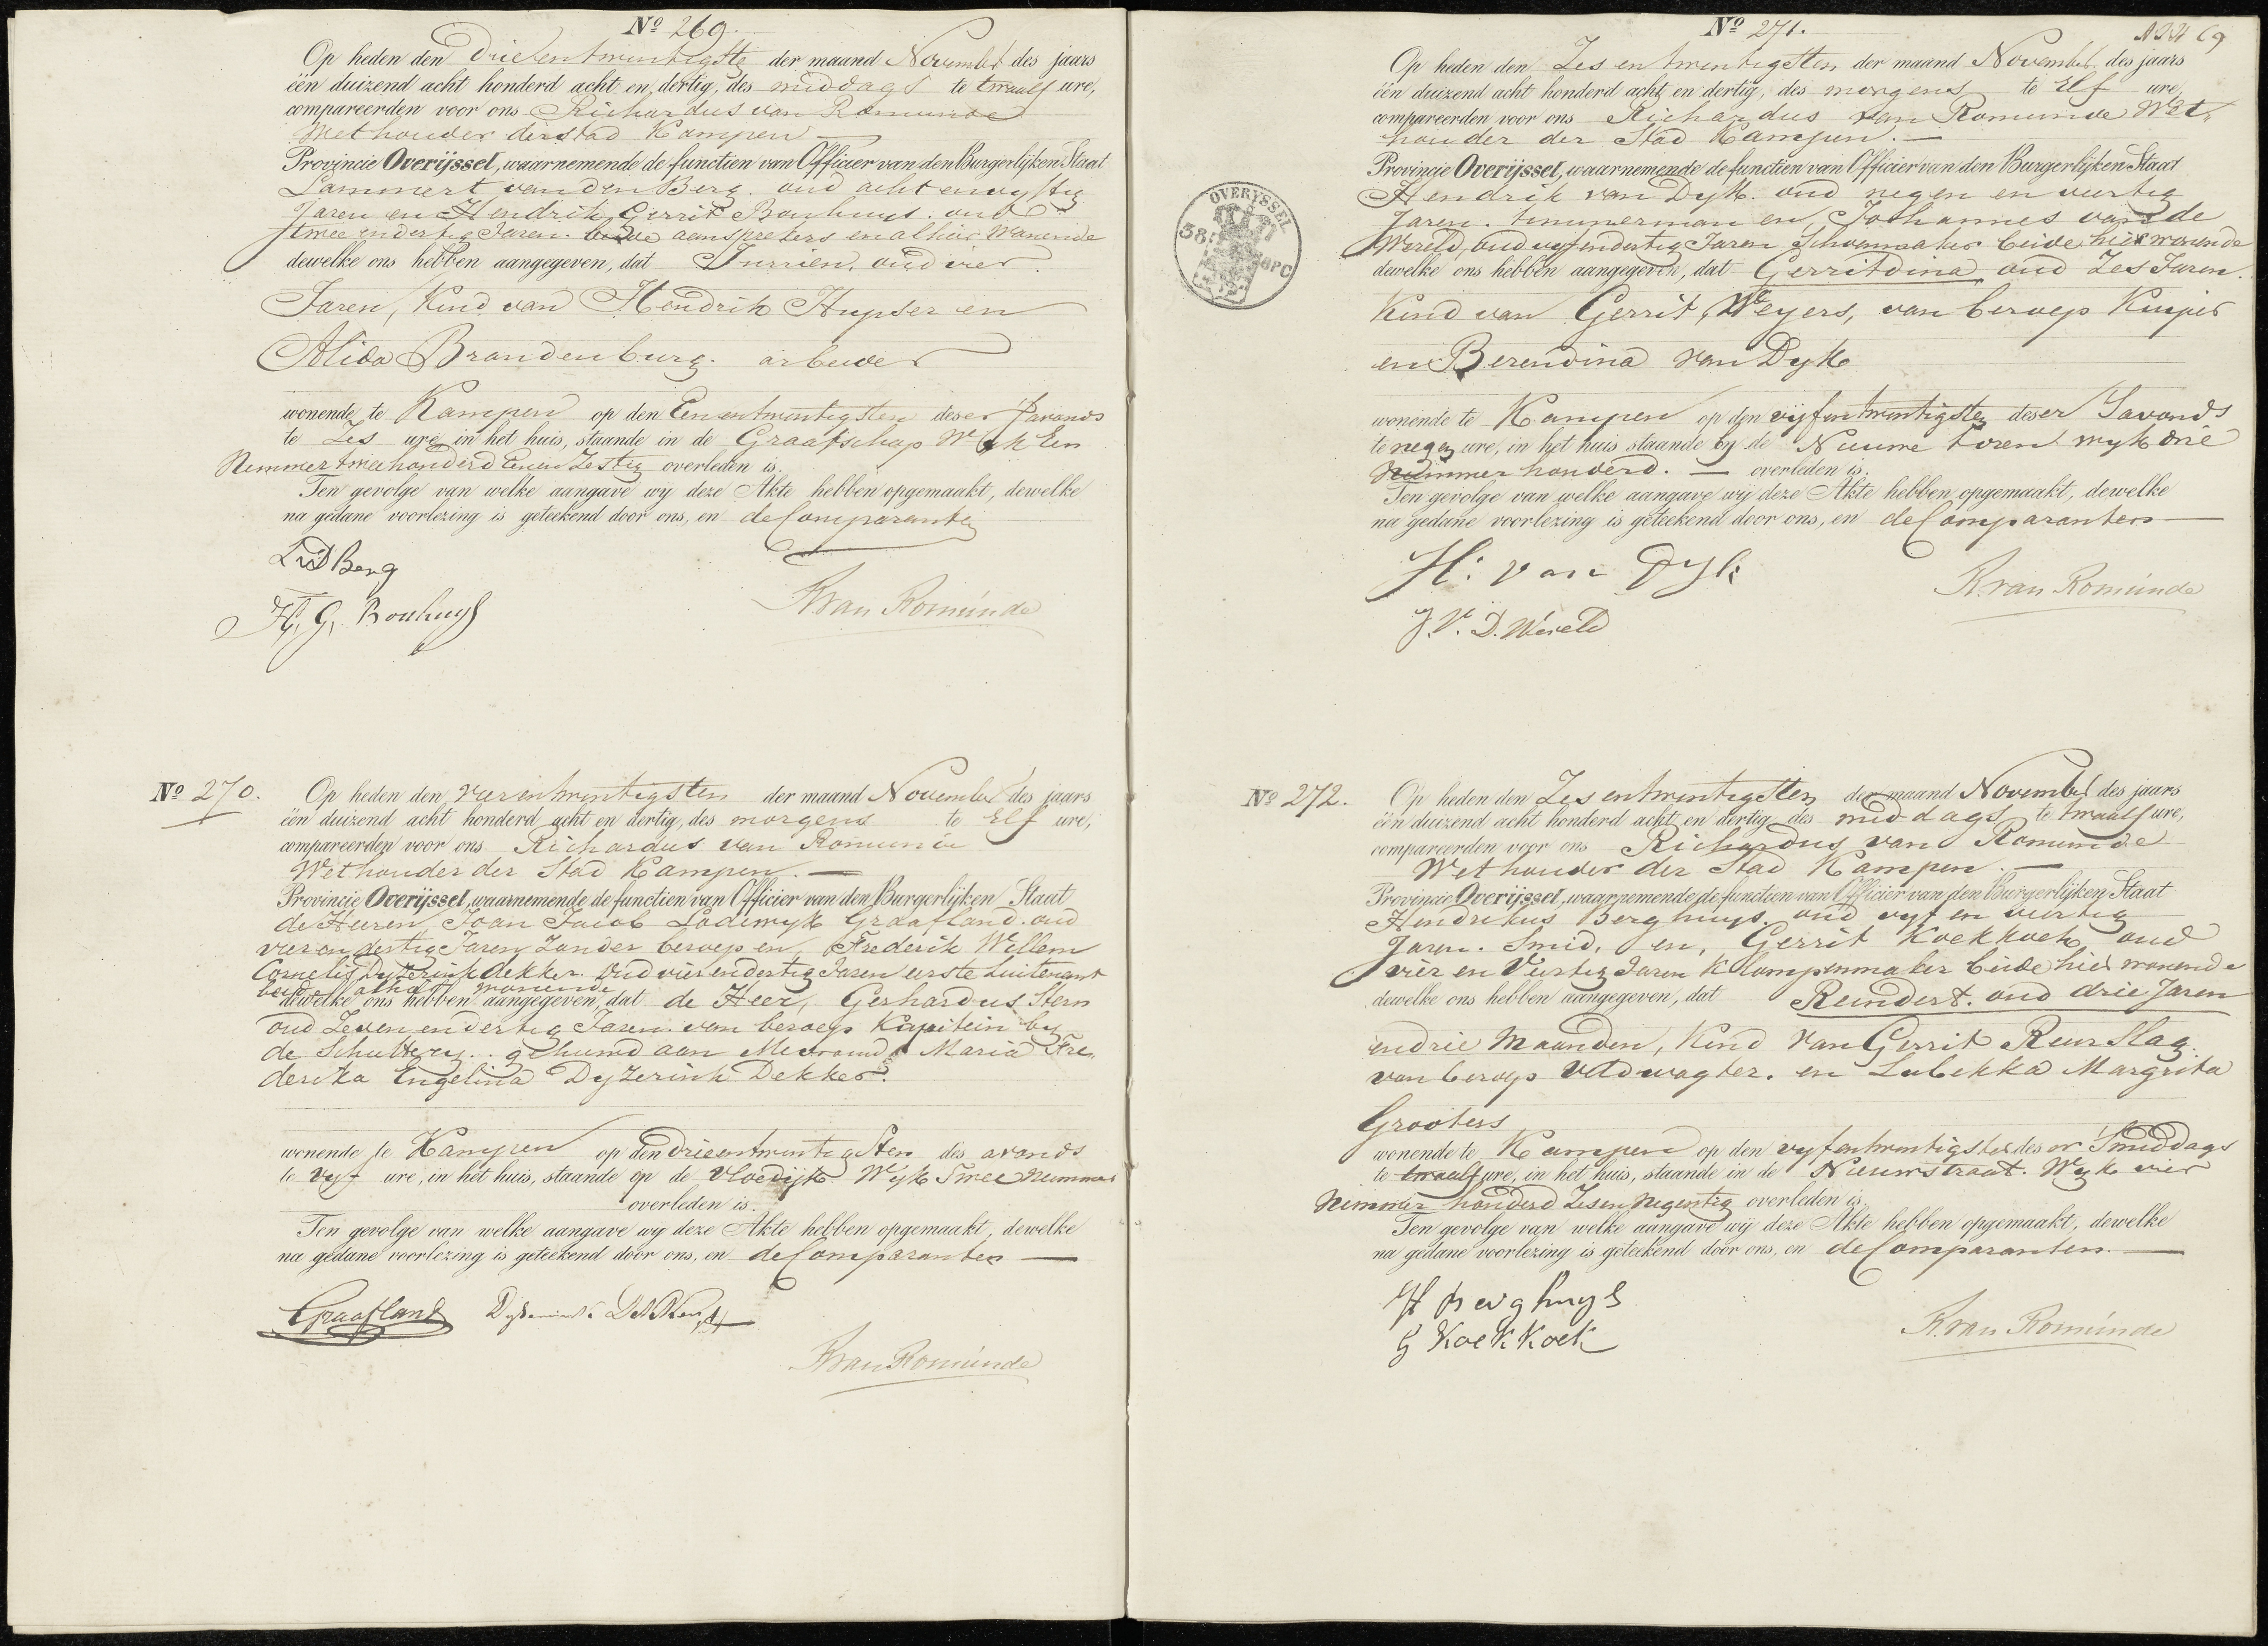 Nº 269.
Op heden den Drieentwintigste der maand November des jaars
één duizend acht honderd acht en dertig, des middags te twaalf ure,
compareerden voor ons Richardus van Romunde
Wethouder der stad Kampen
Provincie Overijssel, waarnemende de functien van Officier van den Burgerlijken Staat
Lammert van den Berg. oud acht en vyftig
Jaren en Hendrik Gerrit Bonhuys. oud
twee en dertig Jaren. beide aansprekers en alhier wonende
dewelke ons hebben aangegeven, dat Jurrien, oud vier
Jaren, Kind van Hendrik Hupser en
Alida Brandenburg. arbeider
wonende te Kampen op den Eenentwintigsten deser savonds
te Zes ure, in het huis, staande in de Graafschap Wyk Een
Nummer tweehonderd Eenen Zestig overleden is.
Ten gevolge van welke aangave wij deze Akte hebben opgemaakt, dewelke
na gedane voorlezing is geteekend door ons, en de Comparanten
LvdBerg
H. G. Bonhuys
R van Romunde
Nº 270.
Op heden den vierentwintigsten der maand November des jaars
één duizend acht honderd acht en dertig, des morgens te Elf ure,
compareerden voor ons Richardus van Romunde
Wethouder der Stad Kampen.
Provincie Overijssel, waarnemende de functien van Officier van den Burgerlijken Staat
de Heeren Joan Jacob Lodewyk Graafland. oud
vier en dertig Jaren Zonder beroep en Frederik Willem
Cornelis Dyzerink Dekker. Oud vier en dertig Jaren eerste Luitenant
beide alhier wonende
dewelke ons hebben aangegeven, dat de Heer, Gerhardus Stern
oud Zeven en dertig Jaren. van beroep Kapitein by
de Schuttery. gehuwd aan Mevrouw Maria Fre,
derika Engelina Dyzerink Dekker.
wonende te Kampen op den drieentwintigsten des avonds
te vyf ure, in het huis, staande op de Vloedijk Wyk Twee Nummer
overleden is.
Ten gevolge van welke aangave wij deze Akte hebben opgemaakt, dewelke
na gedane voorlezing is geteekend door ons, en de Comparanten
Graafland Dyserinck Dekker
R van Romunde
Nº 271.
69
Op heden den Zes en twintigsten der maand November des jaars
één duizend acht honderd acht en dertig, des morgens te Elf ure,
compareerden voor ons Richardus van Romunde Wet,
houder der Stad Kampen.
Provincie Overijssel, waarnemende de functien van Officier van den Burgerlijken Staat
Hendrik van Dyk. oud negen en veertig
Jaren. timmerman en, Johannes van de
Wereld, oud vyfendertig Jaren Schoenmaker beide hier wonende
dewelke ons hebben aangegeven, dat Gerritdina oud Zes Jaren.
Kind van Gerrit Weyers, van beroep Kuiper
en Berendina van Dyk
wonende te Kampen op den vijfentwintigsten deser Savonds
te negen ure, in het huis staande by de Nieuwe toren wyk drie
Nummer honderd. overleden is.
Ten gevolge van welke aangave wij deze Akte hebben opgemaakt, dewelke
na gedane voorlezing is geteekend door ons, en de Comparanten
H: van Dyk
J. V. D. Wereld
R. van Romunde
OVERYSSEL
38
Nº 272.
Op heden den Zes entwintigsten der maand November des jaars
één duizend acht honderd acht en dertig des middags te twaalf ure,
compareerden voor ons Richardus van Romunde
Wethouder der Stad Kampen.
Provincie Overijssel, waarnemende de functien van Officier van den Burgerlijken Staat
Hindrikus Berghuys. oud vyf en veertig
Jaren. Smid. en, Gerrit Koekkoek, oud
vier en Veertig Jaren Klompenmaker beide hier wonende
dewelke ons hebben aangegeven, dat Reindert. oud drie Jaren
en drie Maanden, Kind van Gerrit Reurslag
van beroep Veldwagter. en Lubikka Margrita
Grooters
wonende te Kampen op den vyfentwintigsten deser Smiddags
te twaalf ure, in het huis, staande in de Nieuwstraat. Wyk vier
Nummer honderd Zes en Negentig overleden is.
Ten gevolge van welke aangave wij deze Akte hebben opgemaakt, dewelke
na gedane voorlezing is geteekend door ons, en de Comparanten.
H Berghuys
G Koekkoek
R. van Romunde